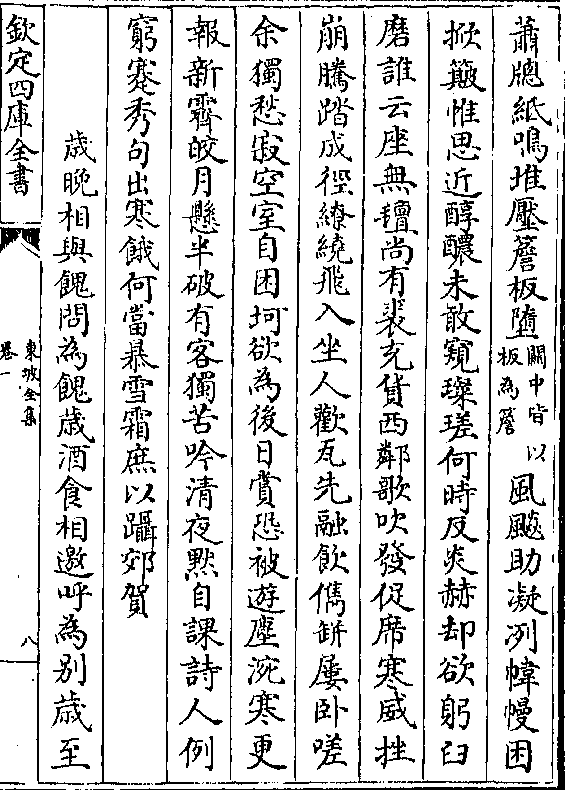 蕭牕紙鳴堆壓簷板墮闗中皆以板為簷風飈助凝冽幃幔困
掀簸惟思近醇醲未敢窺璨瑳何時反炎赫却欲躬臼
磨誰云座無氊尚有裘充貨西鄰歌吹發促席寒威挫
崩騰踏成徑繚繞飛入坐人歡瓦先融飲儁缾屢卧嗟
余獨愁寂空室自困坷欲為後日賞恐被遊塵涴寒更
報新霽皎月懸半破有客獨苦吟清夜黙自課詩人例
窮蹇秀句出寒餓何當暴雪霜庶以躡郊賀
歲晚相與餽問為餽歲酒食相邀呼為别歲至
欽定四庫全書
東坡全集
卷一
八